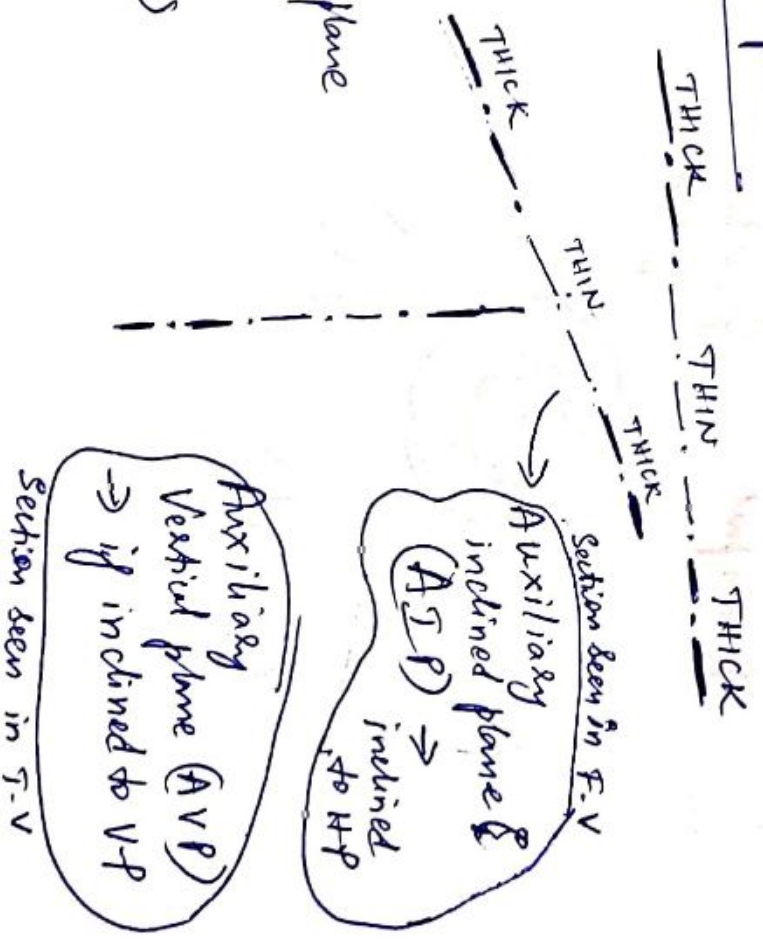 plane
THICK
THIN
THICK
THICK
THIN
THICK
Section seen in F.V
Auxiliary
inclined plane &
(AIP) →
inclined
to HP
Auxiliary
Vertical plane (AVP)
→ if inclined to V.P
Section seen in T.V